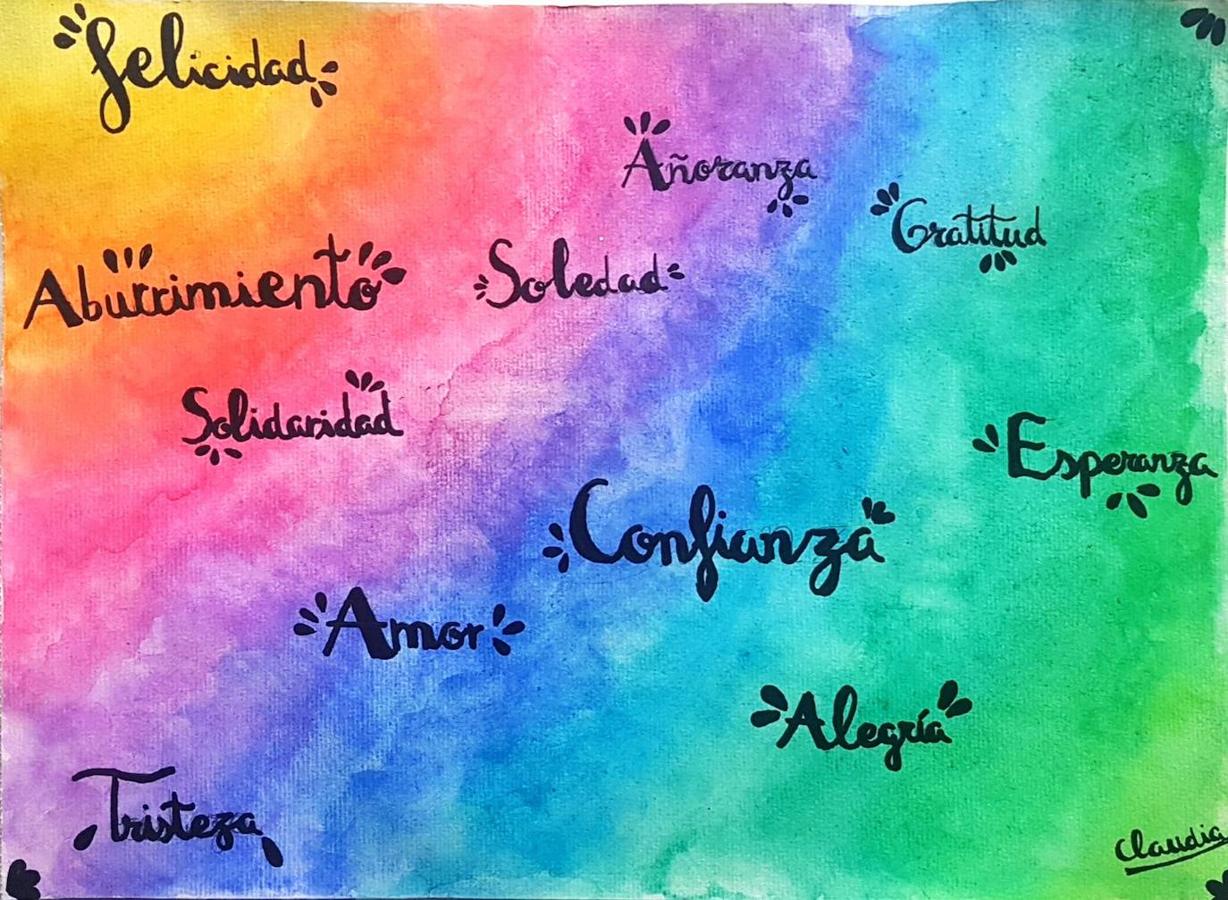 felicidad
Añoranza
Gratitud
Aburrimiento
Soledad
Solidaridad
Esperanza
Confianza
Amor
Alegría
Tristeza
Claudia